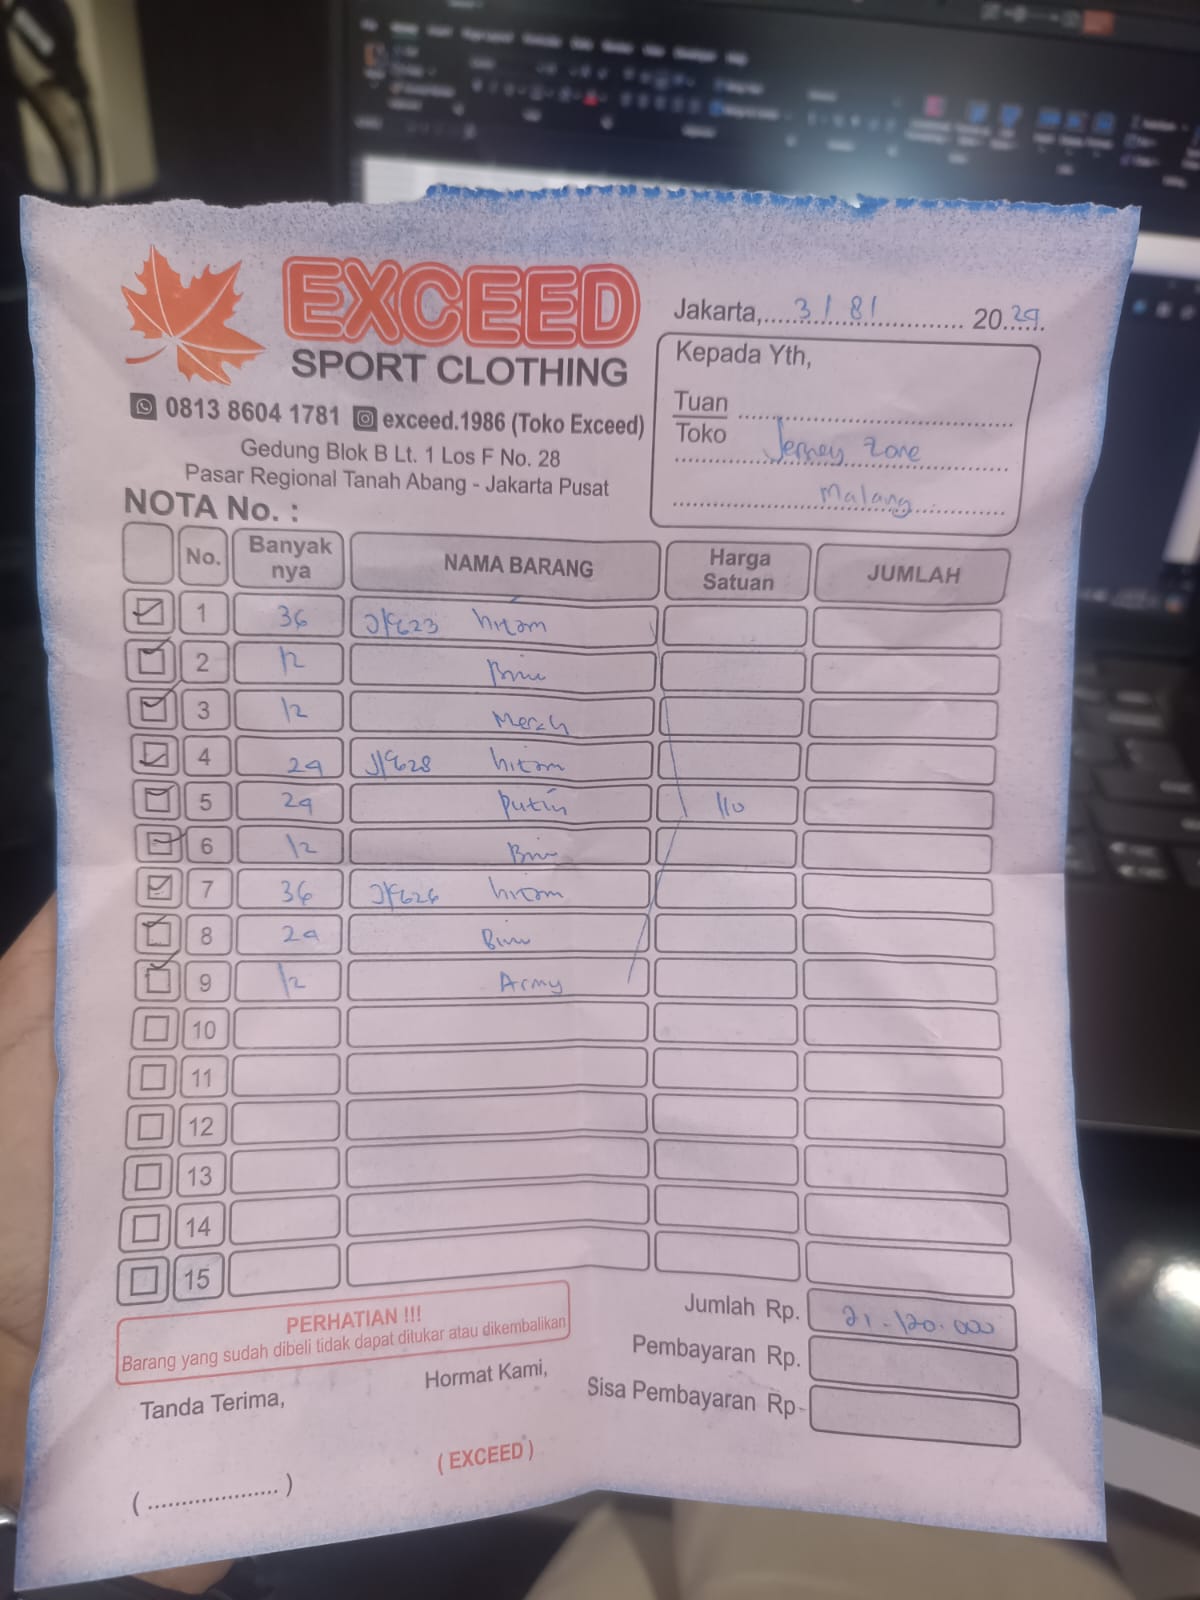 EXCEED
SPORT CLOTHING
0813 8604 1781 exceed.1986 (Toko Exceed)
Gedung Blok B Lt. 1 Los F No. 28
Pasar Regional Tanah Abang - Jakarta Pusat
NOTA No. :
Jakarta, 3/8/ 2024
Kepada Yth,
Tuan
Toko Jersey Zone
Malang
No. Banyak nya NAMA BARANG Harga Satuan JUMLAH
1 36 hitam
2 12 Biru
3 12 Merah
4 24 hitam
5 24 putih 110
6 12 Biru
7 36 hitam
8 24 Biru
9 12 Army
10
11
12
13
14
15
PERHATIAN !!!
Barang yang sudah dibeli tidak dapat ditukar atau dikembalikan
Jumlah Rp. 21.120.000
Pembayaran Rp.
Sisa Pembayaran Rp
Tanda Terima,
Hormat Kami,
(....................)
( EXCEED )